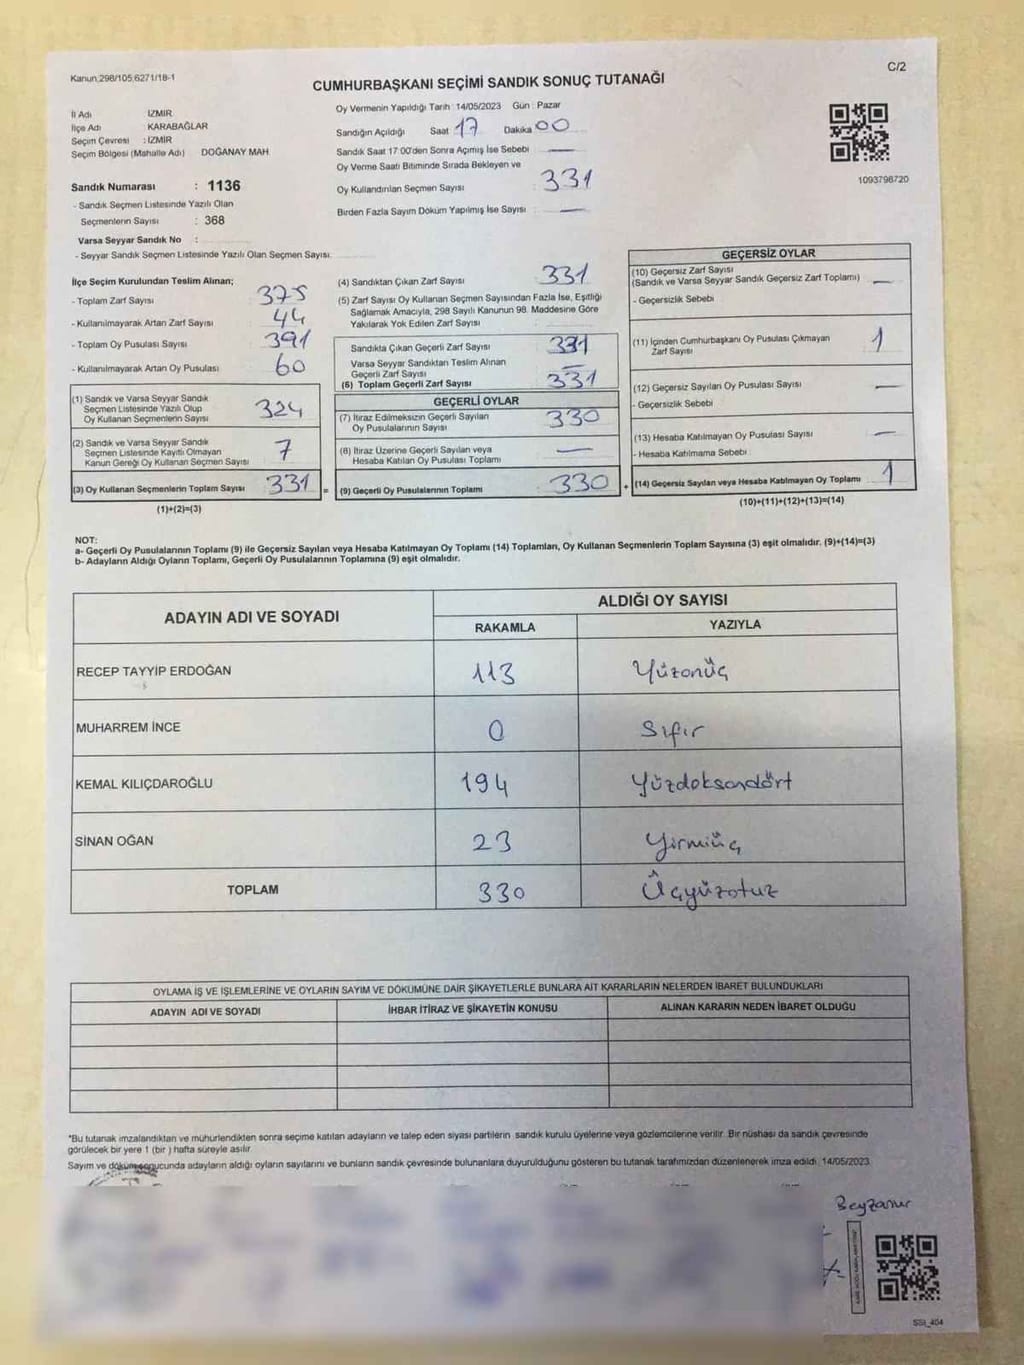 Kanun,298/105,6271/18-1
C/2
CUMHURBAŞKANI SEÇİMİ SANDIK SONUÇ TUTANAĞI
İl Adı İZMİR
İlçe Adı KARABAĞLAR
Seçim Çevresi : İZMİR
Seçim Bölgesi (Mahalle Adı) DOĞANAY MAH.
Sandık Numarası : 1136
- Sandık Seçmen Listesinde Yazılı Olan
Seçmenlerin Sayısı : 368
Varsa Seyyar Sandık No :
- Seyyar Sandık Seçmen Listesinde Yazılı Olan Seçmen Sayısı:
Oy Vermenin Yapıldığı Tarih :14/05/2023 Gün : Pazar
Sandığın Açıldığı Saat 17 Dakika 00
Sandık Saat 17:00'den Sonra Açımış İse Sebebi —
Oy Verme Saati Bitiminde Sırada Bekleyen ve
Oy Kullandırılan Seçmen Sayısı : 331
Birden Fazla Sayım Döküm Yapılmış İse Sayısı —
1093798720
İlçe Seçim Kurulundan Teslim Alınan;
- Toplam Zarf Sayısı 375
- Kullanılmayarak Artan Zarf Sayısı 44
- Toplam Oy Pusulası Sayısı 391
- Kullanılmayarak Artan Oy Pusulası 60
(1) Sandık ve Varsa Seyyar Sandık
Seçmen Listesinde Yazılı Olup
Oy Kullanan Seçmenlerin Sayısı 324
(2) Sandık ve Varsa Seyyar Sandık
Seçmen Listesinde Kayıtlı Olmayan
Kanun Gereği Oy Kullanan Seçmen Sayısı 7
(3) Oy Kullanan Seçmenlerin Toplam Sayısı 331 =
(1)+(2)=(3)
(4) Sandıktan Çıkan Zarf Sayısı 331
(5) Zarf Sayısı Oy Kullanan Seçmen Sayısından Fazla İse, Eşitliği
Sağlamak Amacıyla, 298 Sayılı Kanunun 98. Maddesine Göre
Yakılarak Yok Edilen Zarf Sayısı
Sandıkta Çıkan Geçerli Zarf Sayısı 331
Varsa Seyyar Sandıktan Teslim Alınan
Geçerli Zarf Sayısı —
(6) Toplam Geçerli Zarf Sayısı 331
GEÇERLİ OYLAR
(7) İtiraz Edilmeksizin Geçerli Sayılan
Oy Pusulalarının Sayısı 330
(8) İtiraz Üzerine Geçerli Sayılan veya
Hesaba Katılan Oy Pusulası Toplamı —
(9) Geçerli Oy Pusulalarının Toplamı : 330 +
GEÇERSİZ OYLAR
(10) Geçersiz Zarf Sayısı
(Sandık ve Varsa Seyyar Sandık Geçersiz Zarf Toplamı) —
- Geçersizlik Sebebi
(11) İçinden Cumhurbaşkanı Oy Pusulası Çıkmayan
Zarf Sayısı 1
(12) Geçersiz Sayılan Oy Pusulası Sayısı —
- Geçersizlik Sebebi
(13) Hesaba Katılmayan Oy Pusulası Sayısı —
- Hesaba Katılmama Sebebi
(14) Geçersiz Sayılan veya Hesaba Katılmayan Oy Toplamı 1
(10)+(11)+(12)+(13)=(14)
NOT:
a- Geçerli Oy Pusulalarının Toplamı (9) ile Geçersiz Sayılan veya Hesaba Katılmayan Oy Toplamı (14) Toplamları, Oy Kullanan Seçmenlerin Toplam Sayısına (3) eşit olmalıdır. (9)+(14)=(3)
b- Adayların Aldığı Oyların Toplamı, Geçerli Oy Pusulalarının Toplamına (9) eşit olmalıdır.
ADAYIN ADI VE SOYADI
ALDIĞI OY SAYISI
RAKAMLA YAZIYLA
RECEP TAYYİP ERDOĞAN 113 Yüzonüç
MUHARREM İNCE 0 Sıfır
KEMAL KILIÇDAROĞLU 194 Yüzdoksandört
SİNAN OĞAN 23 Yirmiüç
TOPLAM 330 Üçyüzotuz
OYLAMA İŞ VE İŞLEMLERİNE VE OYLARIN SAYIM VE DÖKÜMÜNE DAİR ŞİKAYETLERLE BUNLARA AİT KARARLARIN NELERDEN İBARET BULUNDUKLARI
ADAYIN ADI VE SOYADI İHBAR İTİRAZ VE ŞİKAYETİN KONUSU ALINAN KARARIN NEDEN İBARET OLDUĞU
*Bu tutanak imzalandıktan ve mühürlendikten sonra seçime katılan adayların ve talep eden siyasi partilerin sandık kurulu üyelerine veya gözlemcilerine verilir. Bir nüshası da sandık çevresinde
görülecek bir yere 1 (bir) hafta süreyle asılır.
Sayım ve döküm sonucunda adayların aldığı oyların sayılarını ve bunların sandık çevresinde bulunanlara duyurulduğunu gösteren bu tutanak tarafımızdan düzenlenerek imza edildi. 14/05/2023
Beyzanur
SSI_404